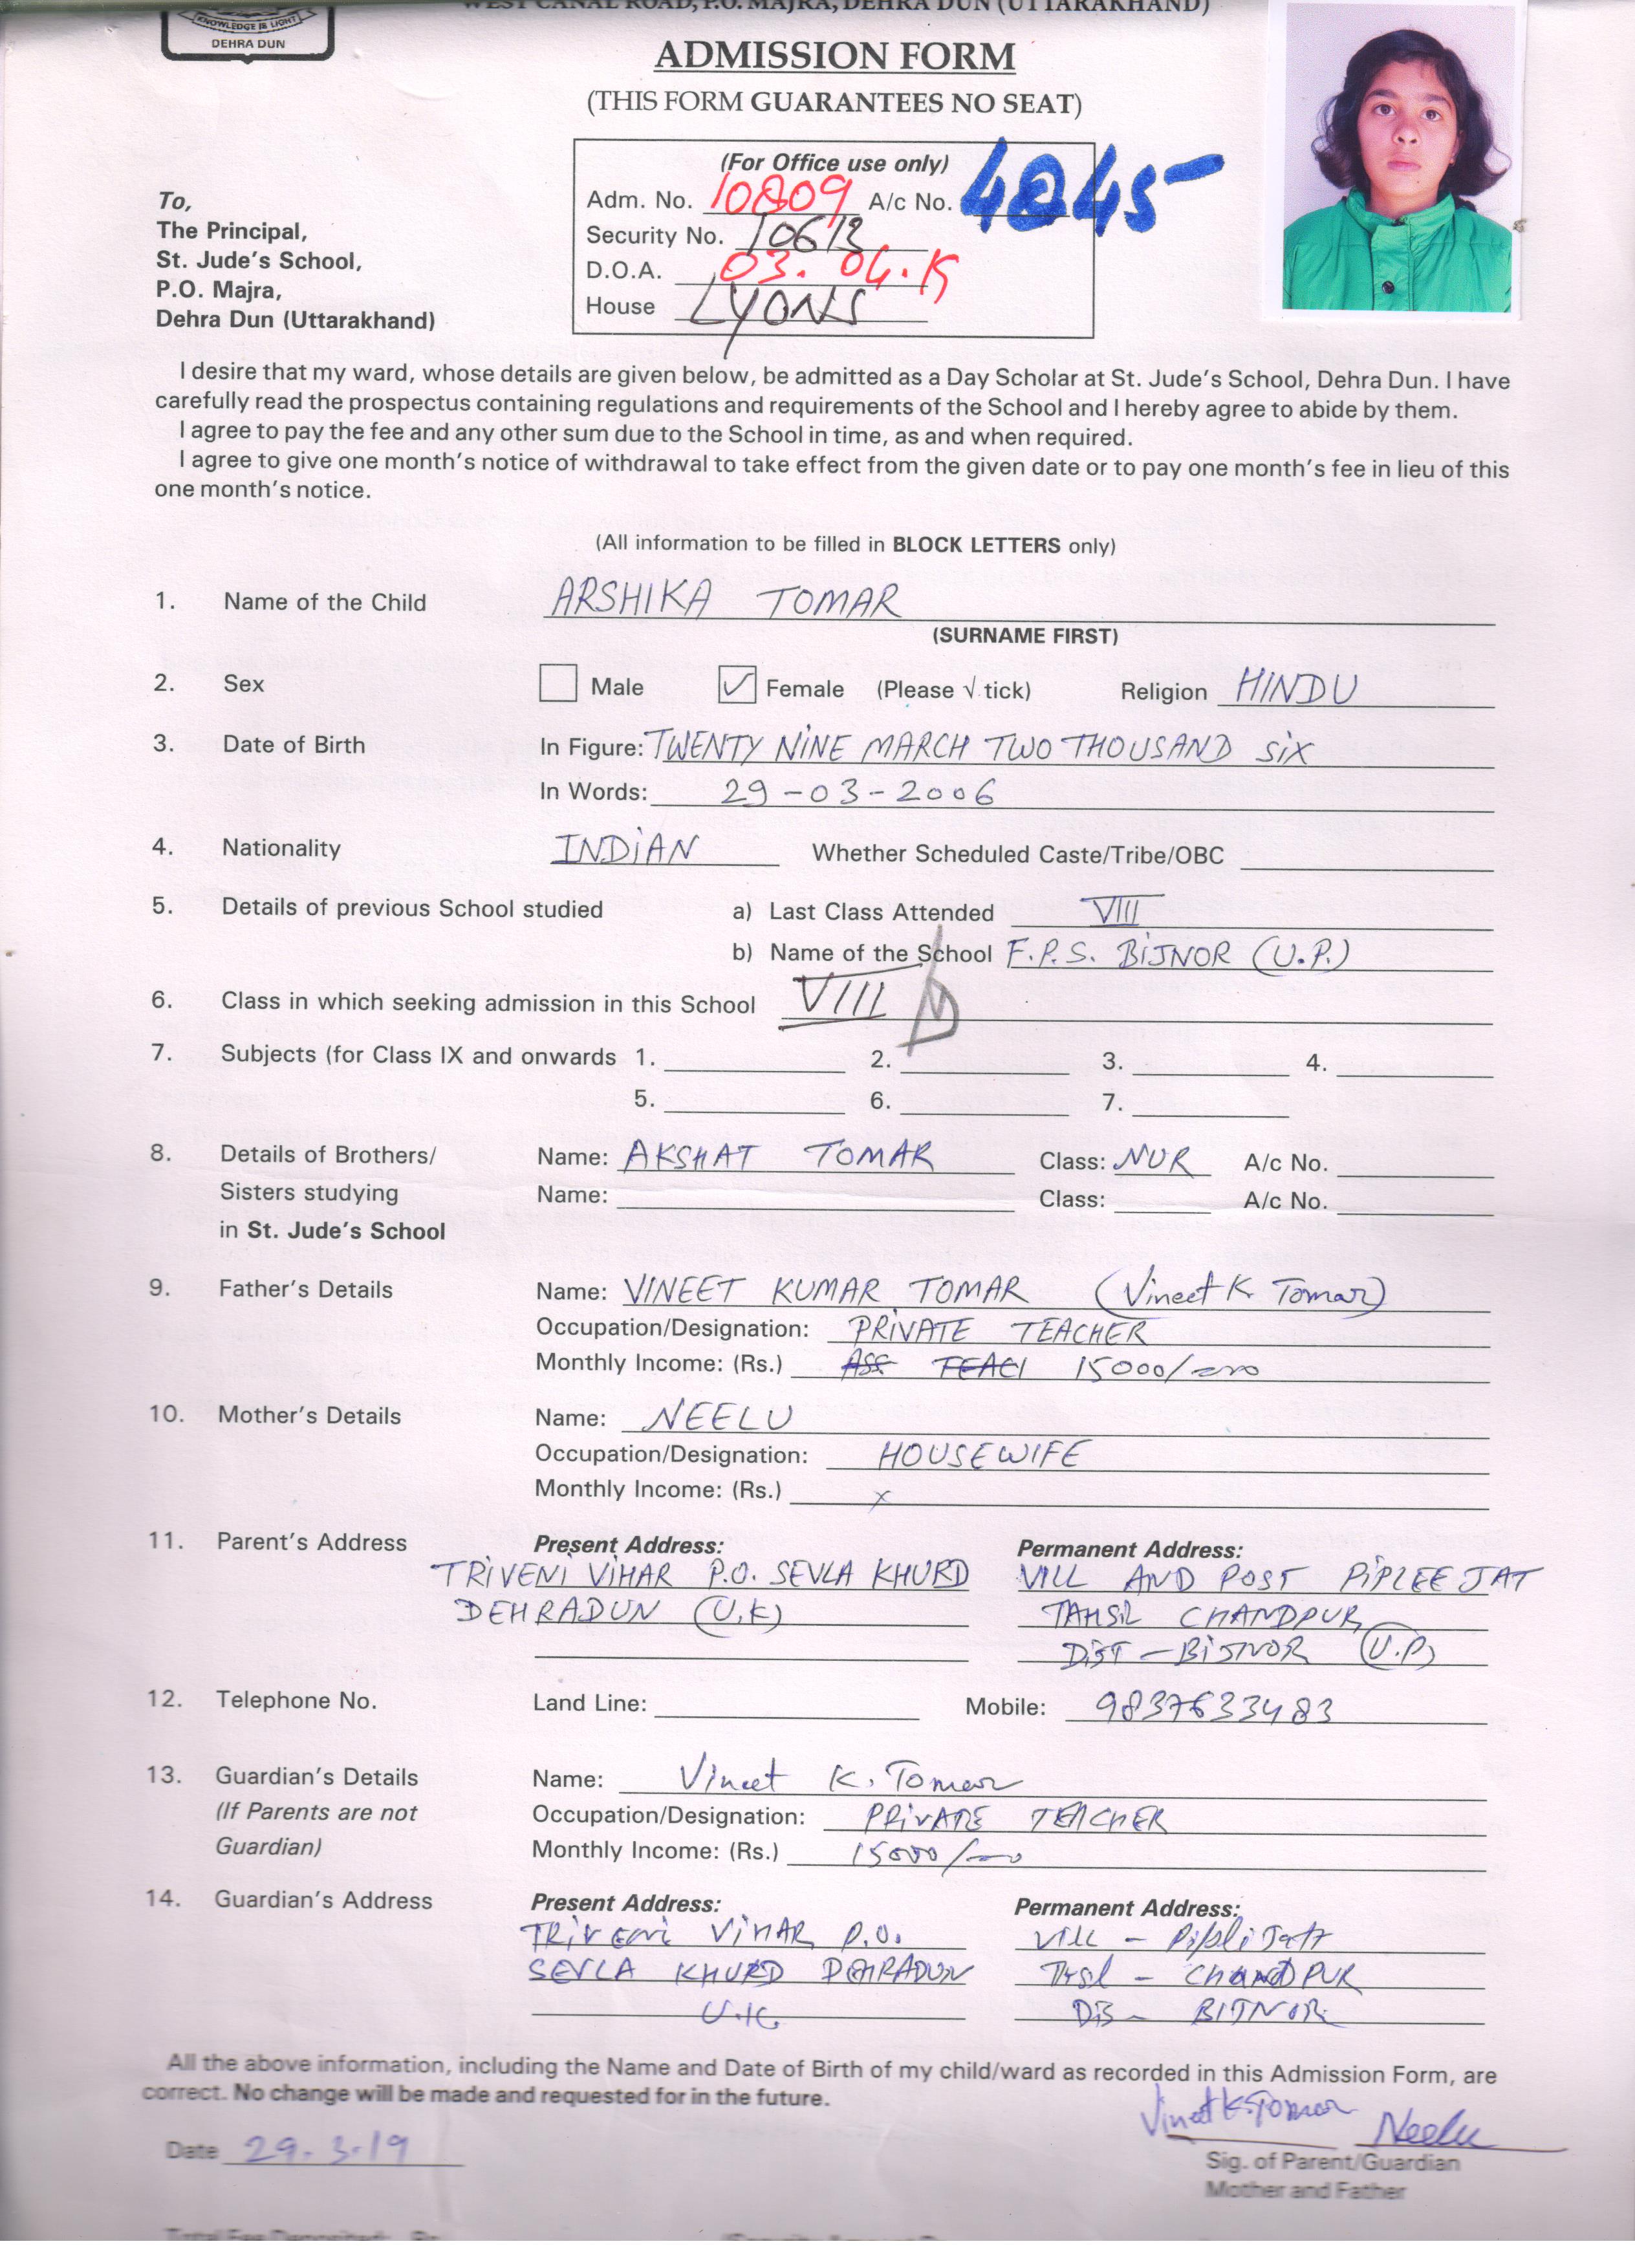 WEST CANAL ROAD, P.O. MAJRA, DEHRA DUN (UTTARAKHAND)
KNOWLEDGE IS LIGHT
DEHRA DUN
ADMISSION FORM
(THIS FORM GUARANTEES NO SEAT)
(For Office use only)
Adm. No. 10809 A/c No. 4845
Security No. 10613
D.O.A. 03.04.19
House LYONS
To,
The Principal,
St. Jude's School,
P.O. Majra,
Dehra Dun (Uttarakhand)
I desire that my ward, whose details are given below, be admitted as a Day Scholar at St. Jude's School, Dehra Dun. I have
carefully read the prospectus containing regulations and requirements of the School and I hereby agree to abide by them.
I agree to pay the fee and any other sum due to the School in time, as and when required.
I agree to give one month's notice of withdrawal to take effect from the given date or to pay one month's fee in lieu of this
one month's notice.
(All information to be filled in BLOCK LETTERS only)
1. Name of the Child ARSHIKA TOMAR
(SURNAME FIRST)
2. Sex Male ✓ Female (Please √ tick) Religion HINDU
3. Date of Birth In Figure: TWENTY NINE MARCH TWO THOUSAND SIX
In Words: 29-03-2006
4. Nationality INDIAN Whether Scheduled Caste/Tribe/OBC
5. Details of previous School studied a) Last Class Attended VIII
b) Name of the School F.P.S. BIJNOR (U.P.)
6. Class in which seeking admission in this School VIII
7. Subjects (for Class IX and onwards 1. 2. 3. 4.
5. 6. 7.
8. Details of Brothers/ Name: AKSHAT TOMAR Class: NUR A/c No.
Sisters studying Name: Class: A/c No.
in St. Jude's School
9. Father's Details Name: VINEET KUMAR TOMAR (Vineet K Tomar)
Occupation/Designation: PRIVATE TEACHER
Monthly Income: (Rs.) 15000/
10. Mother's Details Name: NEELU
Occupation/Designation: HOUSEWIFE
Monthly Income: (Rs.) x
11. Parent's Address Present Address: Permanent Address:
TRIVENI VIHAR P.O. SEVLA KHURD VILL AND POST PIPLEE JAT
DEHRADUN (U.K) TAHSIL CHANDPUR
DIST - BIJNOR (U.P)
12. Telephone No. Land Line: Mobile: 9837633483
13. Guardian's Details Name: Vineet K. Tomar
(If Parents are not Occupation/Designation: PRIVATE TEACHER
Guardian) Monthly Income: (Rs.) 15000/
14. Guardian's Address Present Address: Permanent Address:
TRIVENI VIHAR P.O. VILL - Pipli Jatt
SEVLA KHURD DEHRADUN CHANDPUR
U.K. BIJNOR
All the above information, including the Name and Date of Birth of my child/ward as recorded in this Admission Form, are
correct. No change will be made and requested for in the future.
Vineet K Tomar Neelu
Date 29.3.19
Sig. of Parent/Guardian
Mother and Father